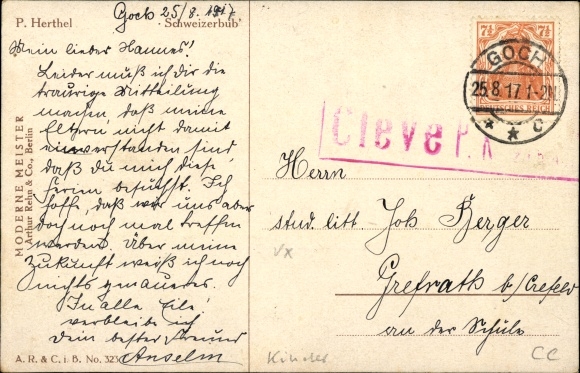 P. Herthel
Schweizerbub'
Goch 25/8. 1917
Mein lieber Hannes!
Leider muß ich Dir die
traurige Mitteilung
machen, daß meine
Eltern nicht damit
einverstanden sind,
daß du mich diese
Ferien besuchst. Ich
hoffe, daß wir uns aber
doch noch mal treffen
werden. Über meine
Zukunft weiß ich noch
nichts genaueres.
In alle Eile
verbleibe ich
Dein bester Freund
Anselm
A. R. & C. i. B. No. 323
MODERNE MEISTER
Arthur Rehn & Co., Berlin
7½ 7½
DEUTSCHES REICH
GOCH
25.8.17.1-2N
* * c
Cleve P. K
Herrn
stud. litt Joh Berger
Grefrath b/Crefeld
an der Schule
Kinder
CC